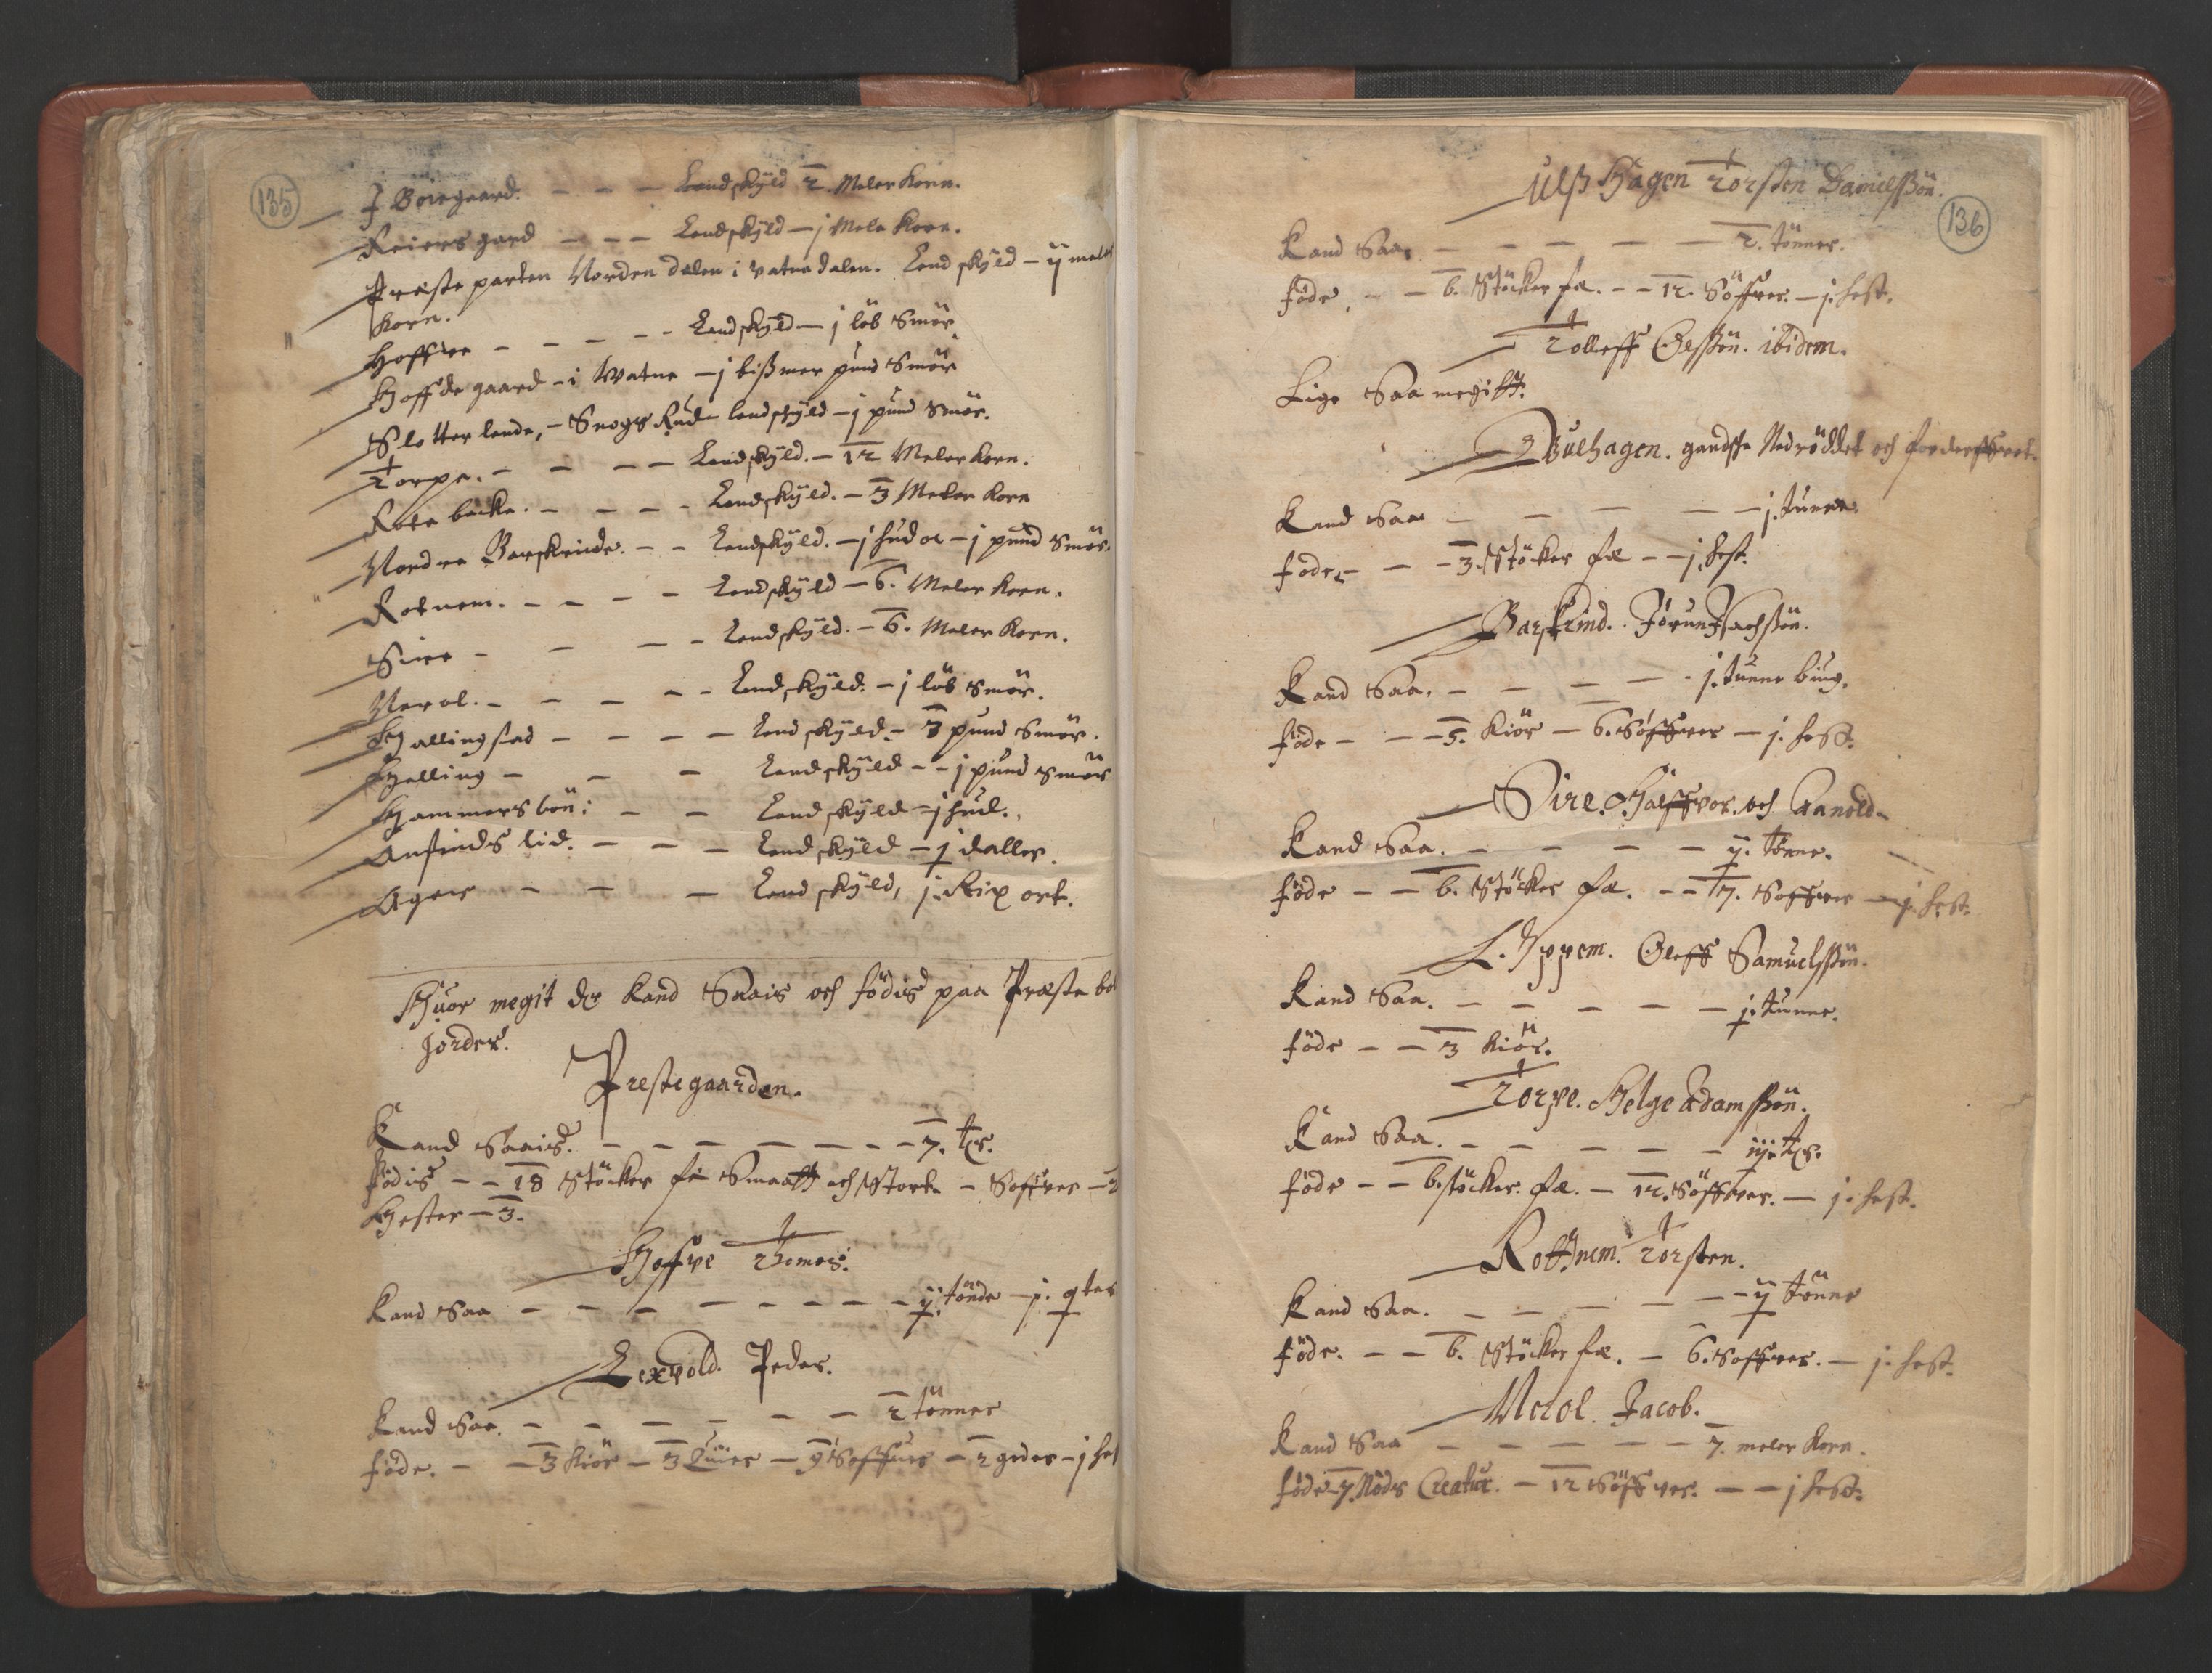 135
I Börregaard. — — — Landskyld 2. Meler Korn.
Reiersgard — — — Landskyld — j Mele Korn.
Præste parten Norden dalen i vatnedalen. Landskyld — ij meler
Korn.
Hoffue — — — — — Landskyld — j löb Smör
Hoffdegaard — i Watne — j bißmer pund Smör
Slotter lende, — Snogs Rud landskyld — j pund Smör.
Torpe. — — — — Landskyld. — 12 Meler Korn.
Rotebecke. — — — — Landskyld. — 3 Meler Korn
Nordre Barskrinde. — — Landskyld. — j hud oc — j pund Smör.
Rotnem. — — — — Landskyld — 6. Meler Korn.
Sire — — — — Landskyld. — 6. Meler Korn.
Merol. — — — — — Landskyld. — j löb Smör.
Hallingstad — — — — Landskyld. — 3 pund Smör.
Helling — — — Landskyld — — j pund Smör
Hammersbön: — — Landskyld — j hud.
Anfinds lid. — — — Landskyld — j daller.
Ager — — — Landskyld, j. Rix ort.
Huor megit der Kand Saais och födis paa Præste bol
Jorder.
Prestegaarden.
Kand Saais. — — — — — — — 7. tr.
födis — — 18 Stöcker fæ Smaatt och Stort — Soffuer —
Hester — 3.
Hoffue Tomes.
Kand Saa — — — — — — — — ij. tönde — j. qter
Lexvold. Peder.
Kand Saa. — — — — — — 2 tönner
föde. — — 3 Kiör — 3 Quier — 9 Soffuer — 2 geder — j hest
136
Ulfs Hagen Torsten Danielßön.
Kand Saa — — — — — 2. tönner.
föde. — — 6. Stöcker fæ. — — 12. Söffuer. — j. hest.
Tolleff Oelßön. ibidem.
Lige Saa megitt.
Bulhagen. gandsche Nedröddet och forderffuet.
Kand Saa — — — — — j. tunne.
föde — — 3. Stöcker fæ — — j. hest.
Barskrind. Jörun Isachßön.
Kand Saa. — — — — j. tunne biug.
föde — — 5. Kiör — 6. Söffuer — j. hest.
Sire. Halffuor. och Aanold —
Kand Saa. — — — — ij. tönne.
föde — — 6. Stöcker fæ. — — 17. Soffuer — j. hest.
L. Ippem. Oleff Samuelßön.
Kand Saa. — — — — — j. tunne.
föde — — 3 Kiör.
Torpe. Helge Adamßön.
Kand Saa. — — — — — iij. tr.
föde — — 6. stöcker. fæ. — 12. Söffuer. — j. hest.
Rottnem. Torsten.
Kand Saa. — — — — — ij tönne
föde. — — 6. Stöcker fæ. — 6. Soffuer. — j. hest.
Merol. Jacob.
Kand Saa — — — — — 7. meler Korn.
föde 7. Nöds Creatur. — 12 Söffuer. — — j hest.